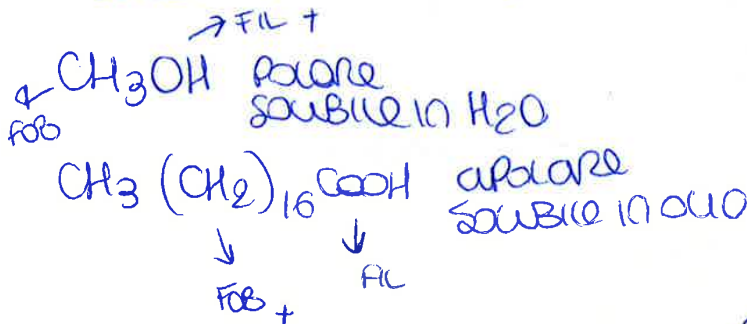 → FIL +
CH3OH POLARE
FOB SOLUBILE IN H2O
CH3 (CH2)16 COOH APOLARE
SOLUBILE IN OLIO
FIL
FOB +